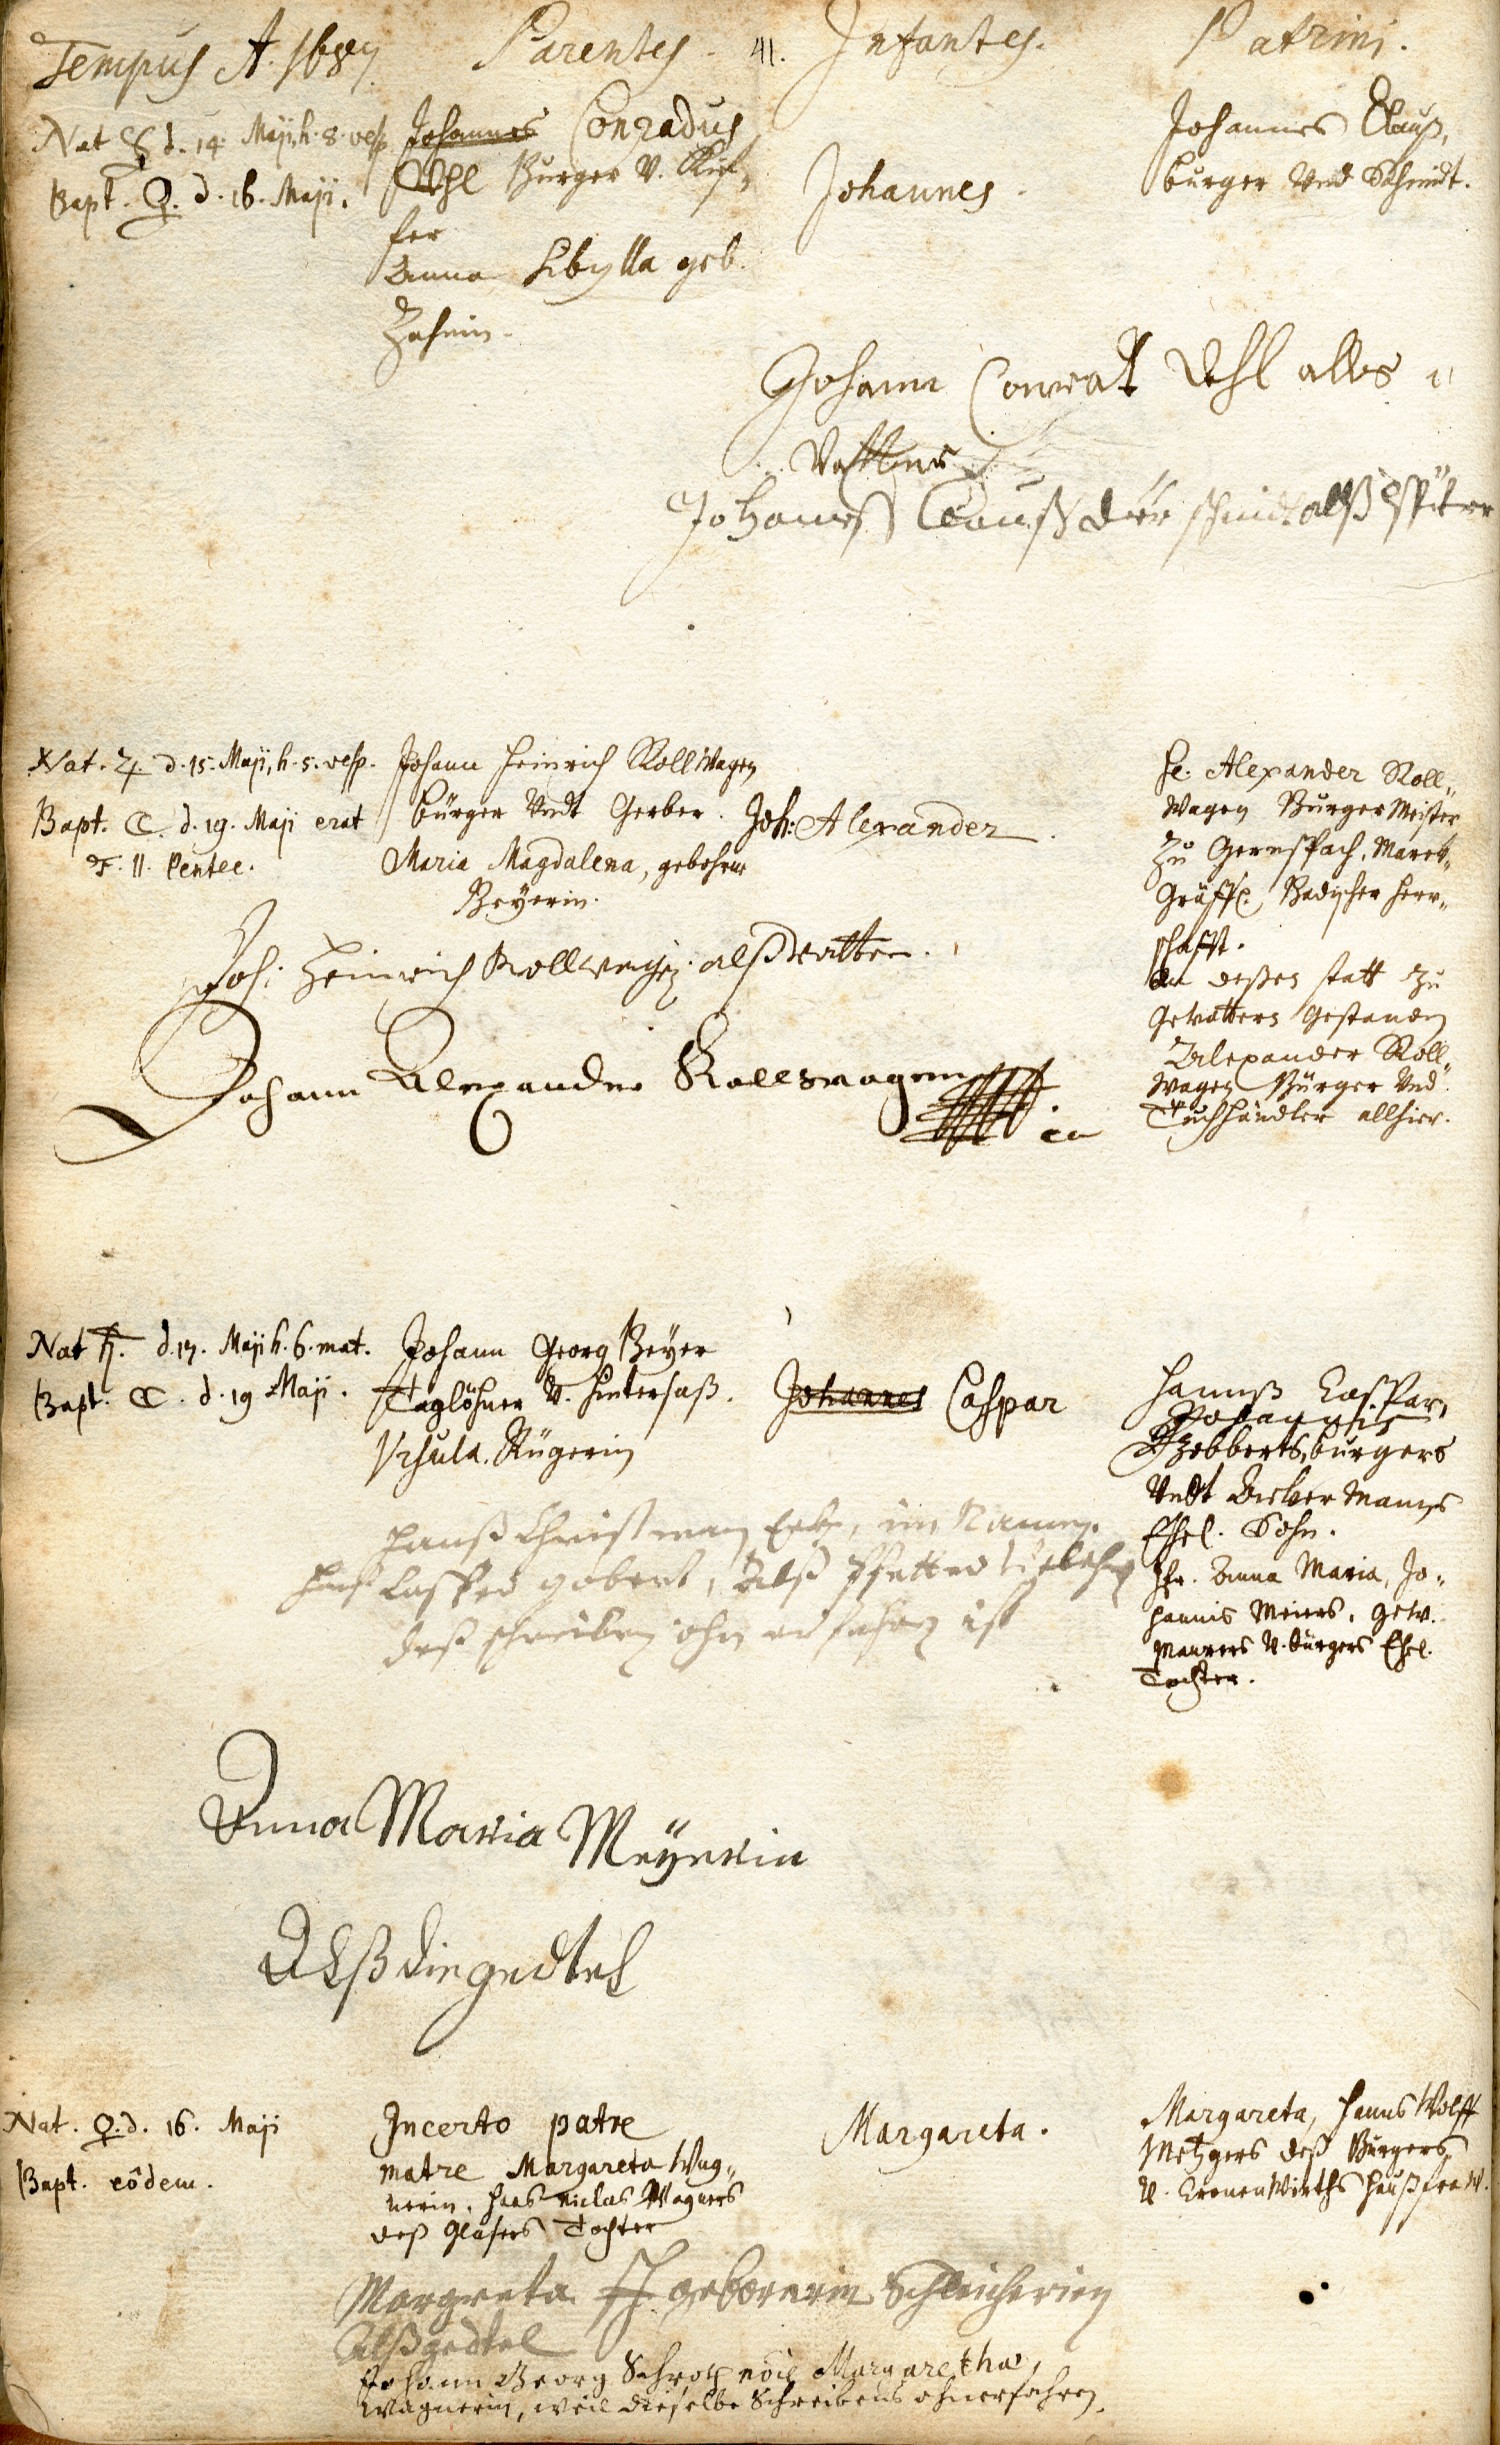 Tempus A. 1689
Parentes.
41.
Infantes.
Patrini.
Nat ☿ d. 14 Maji, h. 8. vesp.
Bapt. ♀. d. 16. Maji.
Johannes Conradus
Öhl Burger V. Küf-
fer
Anna Sibylla geb.
Zahnin.
Johannes.
Johannes Clauß,
burger Und Schmidt.
Johann Conrat Öhl alls
Vatter
Johannes Clauß der schmidt alß
Nat. ♃ d. 15. Maji, h. 5. vesp.
Bapt. ☾. d. 19. Maji erat
F. II. Pentec.
Johann Heinrich RollWagen
bürger Undt Gerber.
Maria Magdalena, gebohrne
Beÿerin.
Joh: Alexander.
H. Alexander Roll-
Wagen BurgerMeister
Zu Gernspach, Marck-
Gräffl. Badischer Herr-
schafft.
An deßen statt Zu
Gevattern Gestanden
Alexander Roll-
Wagen Bürger Und
Tuchhändler allhier.
Joh: Heinrich Rollwagen alß vatter.
Johann Alexander Rollwagen
Nat ♄. d. 17. Maji h. 6. mat.
Bapt. ☾. d. 19 Maji.
Johann Georg Beÿer
Taglöhner V. hintersaß.
Ursula Rügerin
Johannes Caspar
Hannß Caspar,
Johannis
burgers
Undt AckerManns
Ehel. Sohn.
Jfr. Anna Maria, Jo-
hannis Meiers, Gew.
Maurers V. bürgers Ehel.
Tochter.
Hanß Christman Erb, im Namen
Hanß Casper gobert, Alß Pfetter
deß schreiben ohn erfahren ist
Anna Maria Meÿerin
Alß die gedtel
Nat. ♀. d. 16. Maji
Bapt. eôdem.
Incerto patre
matre Margareta Wag-
nerin, Hans Niclas Wagners
deß Glasers Tochter
Margareta.
Margareta, Hanns Wolff
Metzgers deß Burgers
V. CronenWirths HaußfraW.
Margreta geborerin Schleicherin
Alß gedtel
Johann Georg Schroth nôie Margaretha
Wagnerin, weil dieselbe Schreibens ohnerfahren.